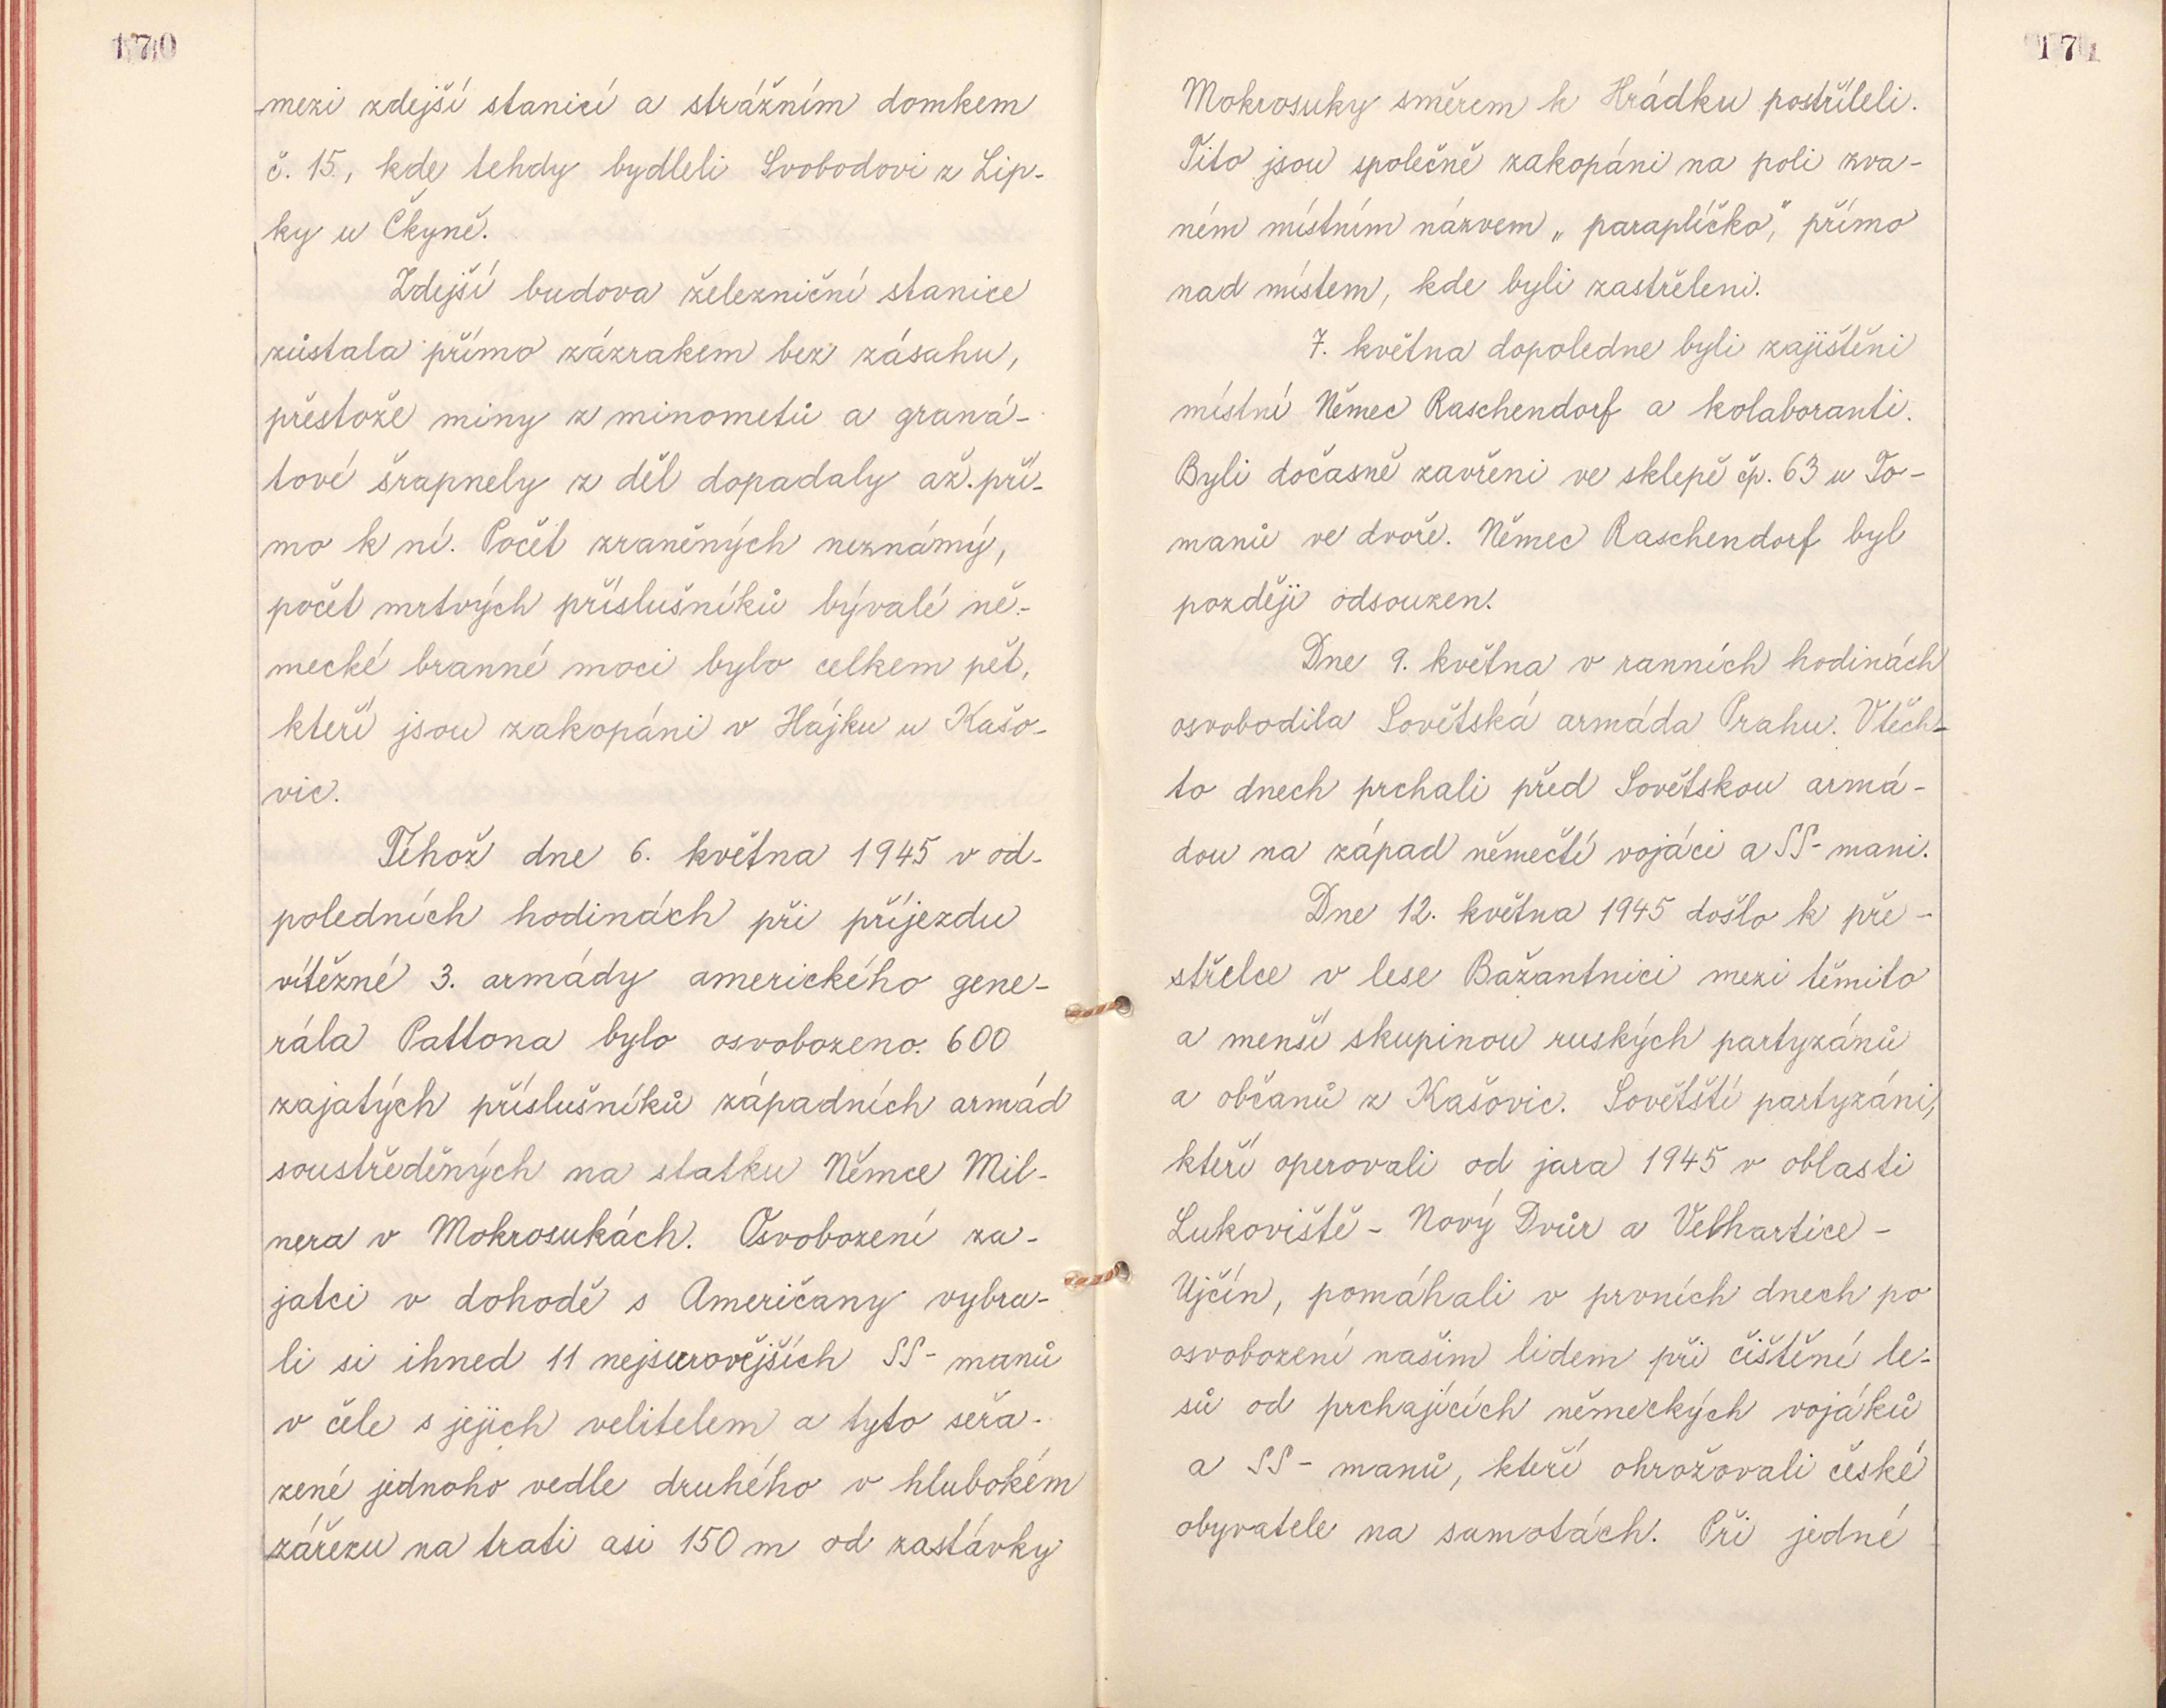 170
mezi zdejší stanicí a strážním domkem
č. 15, kde tehdy bydleli Svobodovi z Lip-
ky u Čkyně.
Zdejší budova železniční stanice
zůstala přímo zázrakem bez zásahu,
přestože miny z minometů a graná-
tové šrapnely z děl dopadaly až pří-
mo k ní. Počet zraněných neznámý,
počet mrtvých příslušníků bývalé ně-
mecké branné moci bylo celkem pět,
kteří jsou zakopáni v Hájku u Kašo-
vic.
Téhož dne 6. května 1945 v od-
poledních hodinách při příjezdu
vítězné 3. armády amerického gene-
rála Pattona bylo osvobozeno 600
zajatých příslušníků západních armád
soustředěných na statku Němce Mil-
nera v Mokrosukách. Osvobození za-
jatci v dohodě s Američany vybra-
li si ihned 11 nejsurovějších SS-manů
v čele s jejich velitelem a tyto seřa-
zené jednoho vedle druhého v hlubokém
zářezu na trati asi 150 m od zastávky
171
Mokrosuky směrem k Hrádku postříleli.
Tito jsou společně zakopáni na poli zva-
ném místním názvem „paraplíčko", přímo
nad místem, kde byli zastřeleni.
7. května dopoledne byli zajištěni
místní Němec Raschendorf a kolaboranti.
Byli dočasně zavřeni ve sklepě čp. 63 u To-
manů ve dvoře. Němec Raschendorf byl
později odsouzen.
Dne 9. května v ranních hodinách
osvobodila Sovětská armáda Prahu. V těch-
to dnech prchali před Sovětskou armá-
dou na západ němečtí vojáci a SS-mani.
Dne 12. května 1945 došlo k pře-
střelce v lese Bažantnici mezi těmito
a menší skupinou ruských partyzánů
a občanů z Kašovic. Sovětští partyzáni,
kteří operovali od jara 1945 v oblasti
Lukoviště - Nový Dvůr a Velhartice -
Ujčín, pomáhali v prvních dnech po
osvobození našim lidem při čištění le-
sů od prchajících německých vojáků
a SS-manů, kteří ohrožovali české
obyvatele na samotách. Při jedné